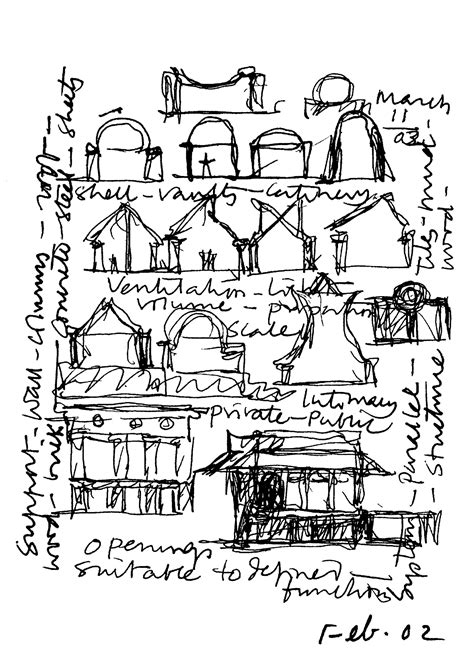 March
11
03
shell-vaults-catenary
Ventilation-Light
volume-proportion
scale
Intimacy
Private-Public
Openings
suitable to defined
functions
Feb. 02
Support-wall-columns-roof-
wood-brick-concrete-steel-sheets
Tiles-mud-
wood-
Systems-Parallel-
-structure